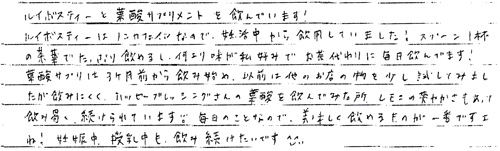 ルイボスティーと葉酸サプリメントを飲んでいます!
ルイボスティーはノンカフェインなので、妊活中から飲用していました! スプーン1杯
の茶葉でたっぷり飲めるし、何より味が私好みでお茶代わりに毎日飲んでます!
葉酸サプリは3ヶ月前から飲み始め、以前は他のお店の物を少し試してみまし
たが飲みにくく、ハッピーブレッシングさんの葉酸を飲んでみた所 レモンの爽やかさもあって
飲み易く、続けられています。毎日のことなので、美味しく飲めるものが一番ですよ
ね! 妊娠中、授乳中も飲み続けたいです